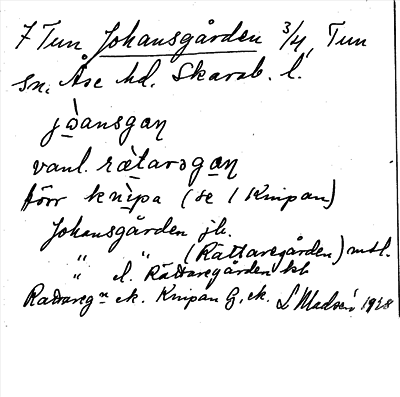 7 Tun Johansgården 3/4, Tun
sn. Åse hd. Skarab. l.
jòansgaɳ
vanl. ræ̀tarəgaɳ
förr knìpa (se 1 Knipan)
Johansgården jb.
" " (Rättaregården) mtl.
" el. Rättaregården kb
Rättareg:n ek. Knipan G. ek. L Madsén 1928